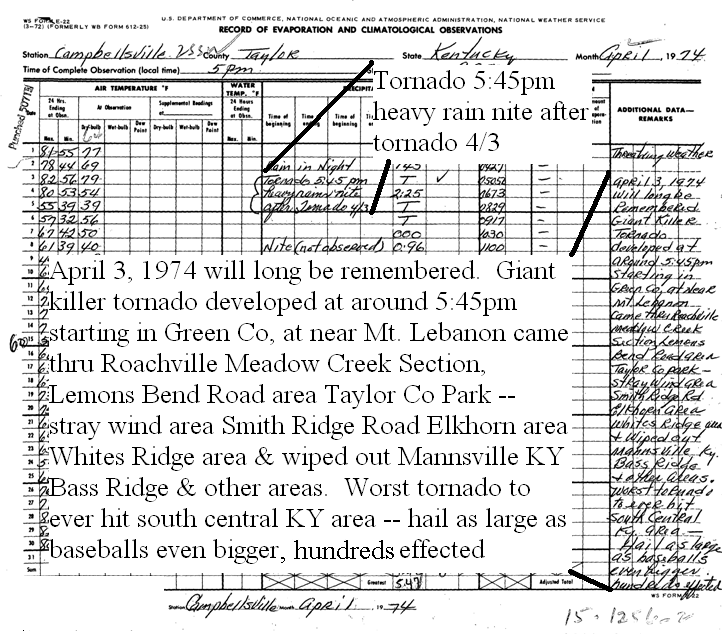 WS FORM E-22 U.S. DEPARTMENT OF COMMERCE, NATIONAL OCEANIC AND ATMOSPHERIC ADMINISTRATION, NATIONAL WEATHER SERVICE
(3-72) (FORMERLY WB FORM 612-25)
RECORD OF EVAPORATION AND CLIMATOLOGICAL OBSERVATIONS
Station Campbellsville County Taylor State Kentucky Month April, 1974
Time of Complete Observation (local time) 5 pm
AIR TEMPERATURE °F WATER TEMP. °F
24 Hrs. Ending at Obsn. At Observation Supplemental Readings at 24 Hours Ending at Obsn. Time of beginning Time of ending Time of beginning
ADDITIONAL DATA— REMARKS
Max. Min. Dry-bulb Wet-bulb Dew Point Dry-bulb Wet-bulb Dew Point Max. Min.
Tornado 5:45pm
heavy rain nite after
tornado 4/3
1 81 55 77 Threatning Weather
2 78 44 69 Rain in Night
3 82 56 79 Tornado 5:45 pm T ✓ —
4 80 53 54 heavy rain nite 2:25 0673 —
5 55 39 39 after Tornado 4/3 T 0829 —
6 57 32 56 T 0917 —
7 67 42 50 000 1030 —
8 61 39 40 Nite (not observed) 0:96 1100 —
April 3, 1974
will long be
Remembered
Giant Killer
Tornado
developed at
around 5:45pm
starting in
Green Co, at Near
Mt Lebanon
Came thru Roachville
Meadow Creek
Section Lemons
Bend Road area
Taylor Co park —
stray wind area
Smith Ridge Rd
Elkhorn area
Whites Ridge area
& wiped out
Mannsville Ky.
Bass Ridge
& other areas.
worst tornado
to ever hit
South Central
Ky. area —
hail as large
as baseballs
even bigger
hundreds effected
April 3, 1974 will long be remembered. Giant
killer tornado developed at around 5:45pm
starting in Green Co, at near Mt. Lebanon came
thru Roachville Meadow Creek Section,
Lemons Bend Road area Taylor Co Park --
stray wind area Smith Ridge Road Elkhorn area
Whites Ridge area & wiped out Mannsville KY
Bass Ridge & other areas. Worst tornado to
ever hit south central KY area -- hail as large as
baseballs even bigger, hundreds effected
Sum
Greatest 5.47 Adjusted Total
Station Campbellsville Month April, 1974